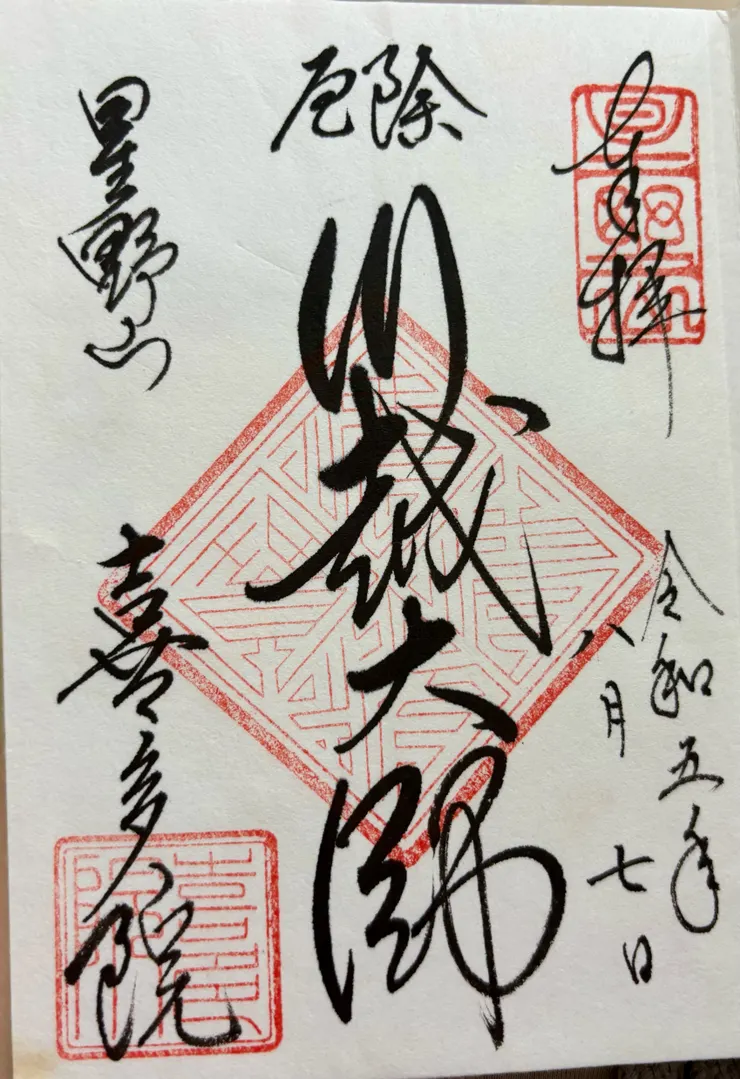 奉拝
令和五年
八月七日
厄除
川越大師
星野山
喜多院